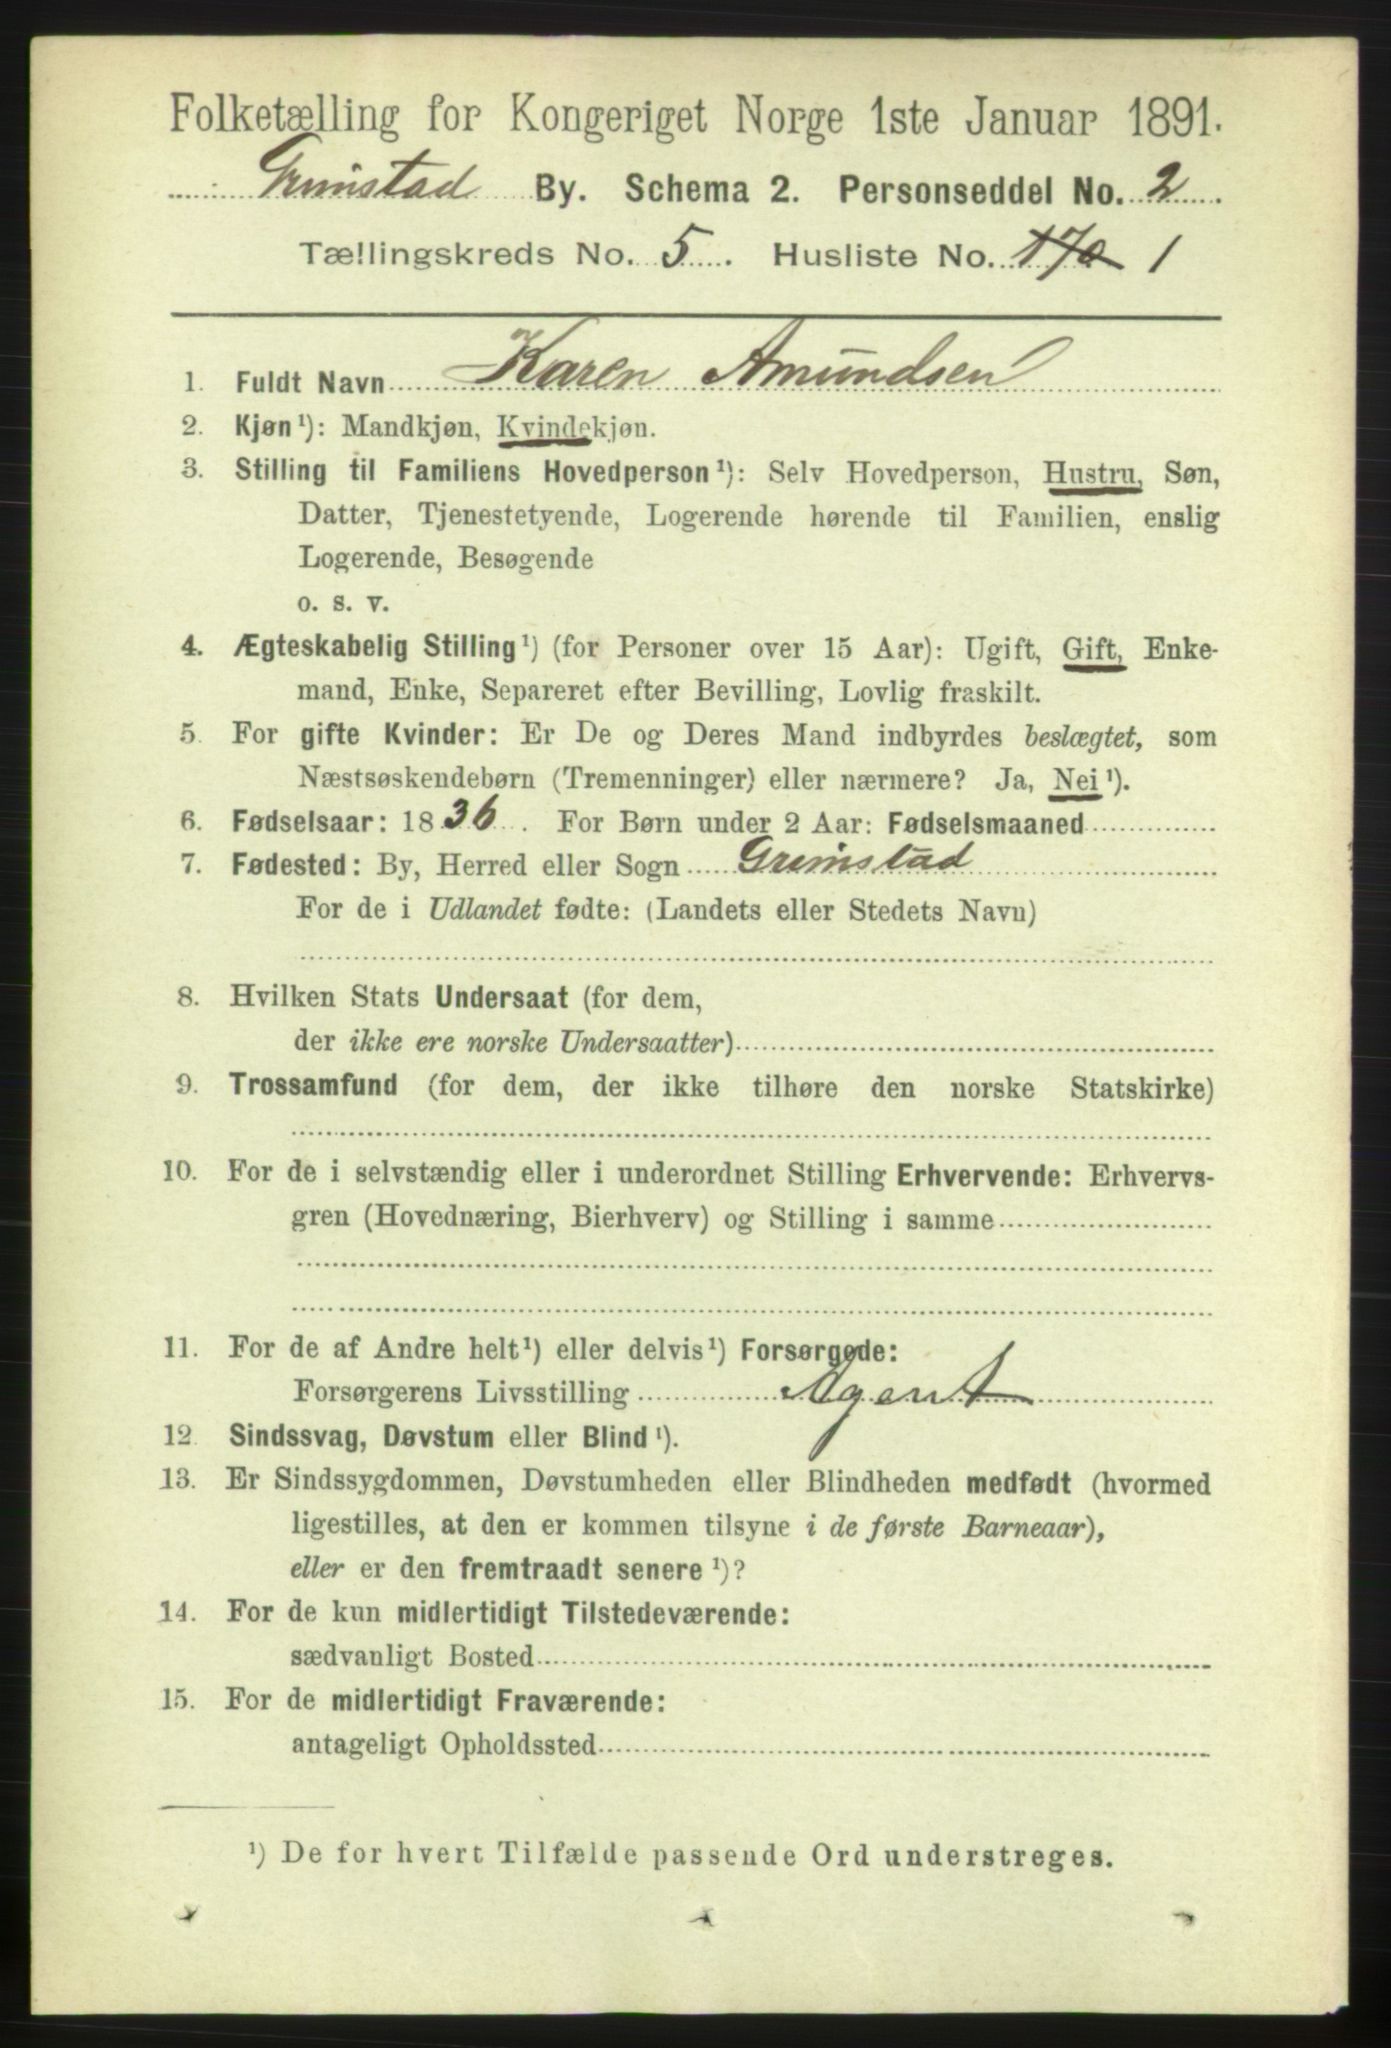 Folketælling for Kongeriget Norge 1ste Januar 1891.
Grimstad By. Schema 2. Personseddel No. 2
Tællingskreds No. 5. Husliste No. 170 1
1. Fuldt Navn Karen Amundsen
2. Kjøn¹): Mandkjøn, Kvindekjøn.
3. Stilling til Familiens Hovedperson¹): Selv Hovedperson, Hustru, Søn,
Datter, Tjenestetyende, Logerende hørende til Familien, enslig
Logerende, Besøgende
o. s. v.
4. Ægteskabelig Stilling¹) (for Personer over 15 Aar): Ugift, Gift, Enke-
mand, Enke, Separeret efter Bevilling, Lovlig fraskilt.
5. For gifte Kvinder: Er De og Deres Mand indbyrdes beslægtet, som
Næstsøskendebørn (Tremenninger) eller nærmere? Ja, Nei¹).
6. Fødselsaar: 1836. For Børn under 2 Aar: Fødselsmaaned
7. Fødested: By, Herred eller Sogn Grimstad
For de i Udlandet fødte: (Landets eller Stedets Navn)
8. Hvilken Stats Undersaat (for dem,
der ikke ere norske Undersaatter)
9. Trossamfund (for dem, der ikke tilhøre den norske Statskirke)
10. For de i selvstændig eller i underordnet Stilling Erhvervende: Erhvervs-
gren (Hovednæring, Bierhverv) og Stilling i samme
11. For de af Andre helt¹) eller delvis¹) Forsørgede:
Forsørgerens Livsstilling Agent
12. Sindssvag, Døvstum eller Blind¹).
13. Er Sindssygdommen, Døvstumheden eller Blindheden medfødt (hvormed
ligestilles, at den er kommen tilsyne i de første Barneaar),
eller er den fremtraadt senere¹)?
14. For de kun midlertidigt Tilstedeværende:
sædvanligt Bosted
15. For de midlertidigt Fraværende:
antageligt Opholdssted
¹) De for hvert Tilfælde passende Ord understreges.